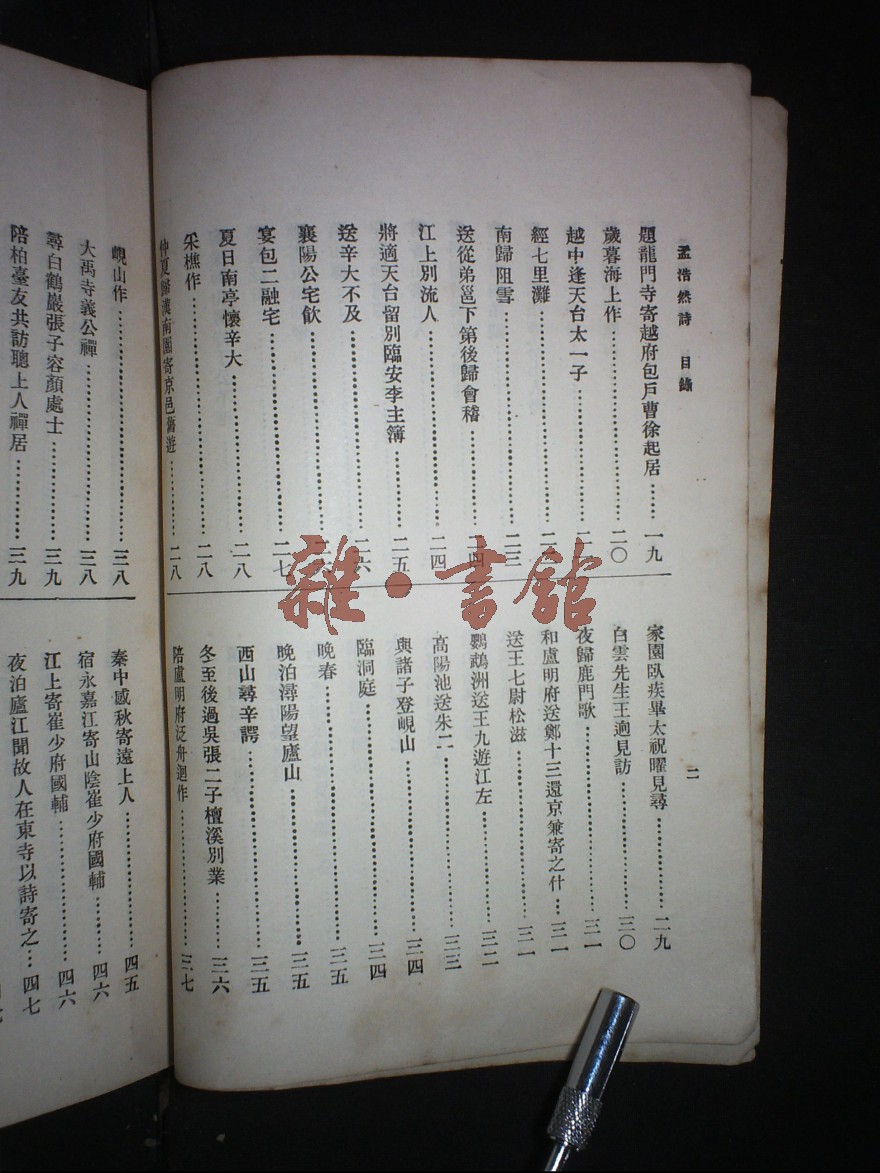 孟浩然詩 目錄
題龍門寺寄越府包戶曹徐起居……一九
歲暮海上作……二〇
越中逢天台太一子……
經七里灘……
南歸阻雪……二三
送從弟邕下第後歸會稽……二四
江上別流人……二四
將適天台留別臨安李主簿……二五
送辛大不及……二六
襄陽公宅飲……
宴包二融宅……二七
夏日南亭懷辛大……二八
采樵作……二八
仲夏歸漢南園寄京邑舊遊……二八
二
家園臥疾畢太祝曜見尋……二九
白雲先生王迥見訪……三〇
夜歸鹿門歌……三一
和盧明府送鄭十三還京兼寄之什…三一
送王七尉松滋……三一
鸚鵡洲送王九遊江左……三二
高陽池送朱二……三三
與諸子登峴山……三四
臨洞庭……三四
晚春……三五
晚泊潯陽望廬山……三五
西山尋辛諤……三五
冬至後過吳張二子檀溪別業……三六
陪盧明府泛舟迴作……三七
峴山作……三八
大禹寺義公禪……三八
尋白鶴巖張子容顏處士……三九
陪柏臺友共訪聰上人禪居……三九
秦中感秋寄遠上人……四五
宿永嘉江寄山陰崔少府國輔……四六
江上寄崔少府國輔……四六
夜泊廬江聞故人在東寺以詩寄之…四七
雜·書館